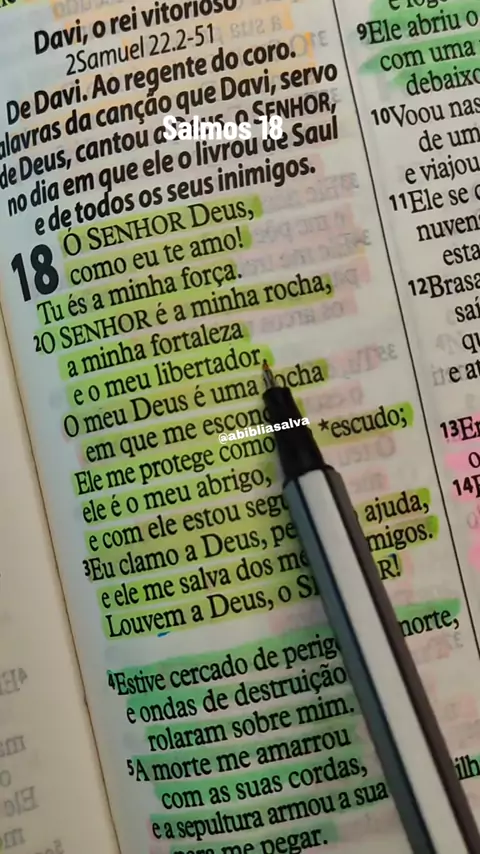 Davi, o rei vitorioso
2Samuel 22.2-51
De Davi. Ao regente do coro.
alavras da canção que Davi, servo
de Deus, cantou a o SENHOR,
no dia em que ele o livrou de Saul
e de todos os seus inimigos.
Salmos 18
18 Ó SENHOR Deus,
como eu te amo!
Tu és a minha força.
2O SENHOR é a minha rocha,
a minha fortaleza
e o meu libertador.
O meu Deus é uma rocha
em que me escon
@abibliasalva
Ele me protege como *escudo;
ele é o meu abrigo,
e com ele estou seg
3Eu clamo a Deus, pe ajuda,
e ele me salva dos me migos.
Louvem a Deus, o S R!
4Estive cercado de perig morte,
e ondas de destruição
rolaram sobre mim.
5A morte me amarrou
com as suas cordas,
e a sepultura armou a sua
para me pegar.
9Ele abriu o
com uma
debaixo
10Voou nas
de um
e viajou
11Ele se
nuven
esta
12Brasa
saí
qu
e at
13En
o
14